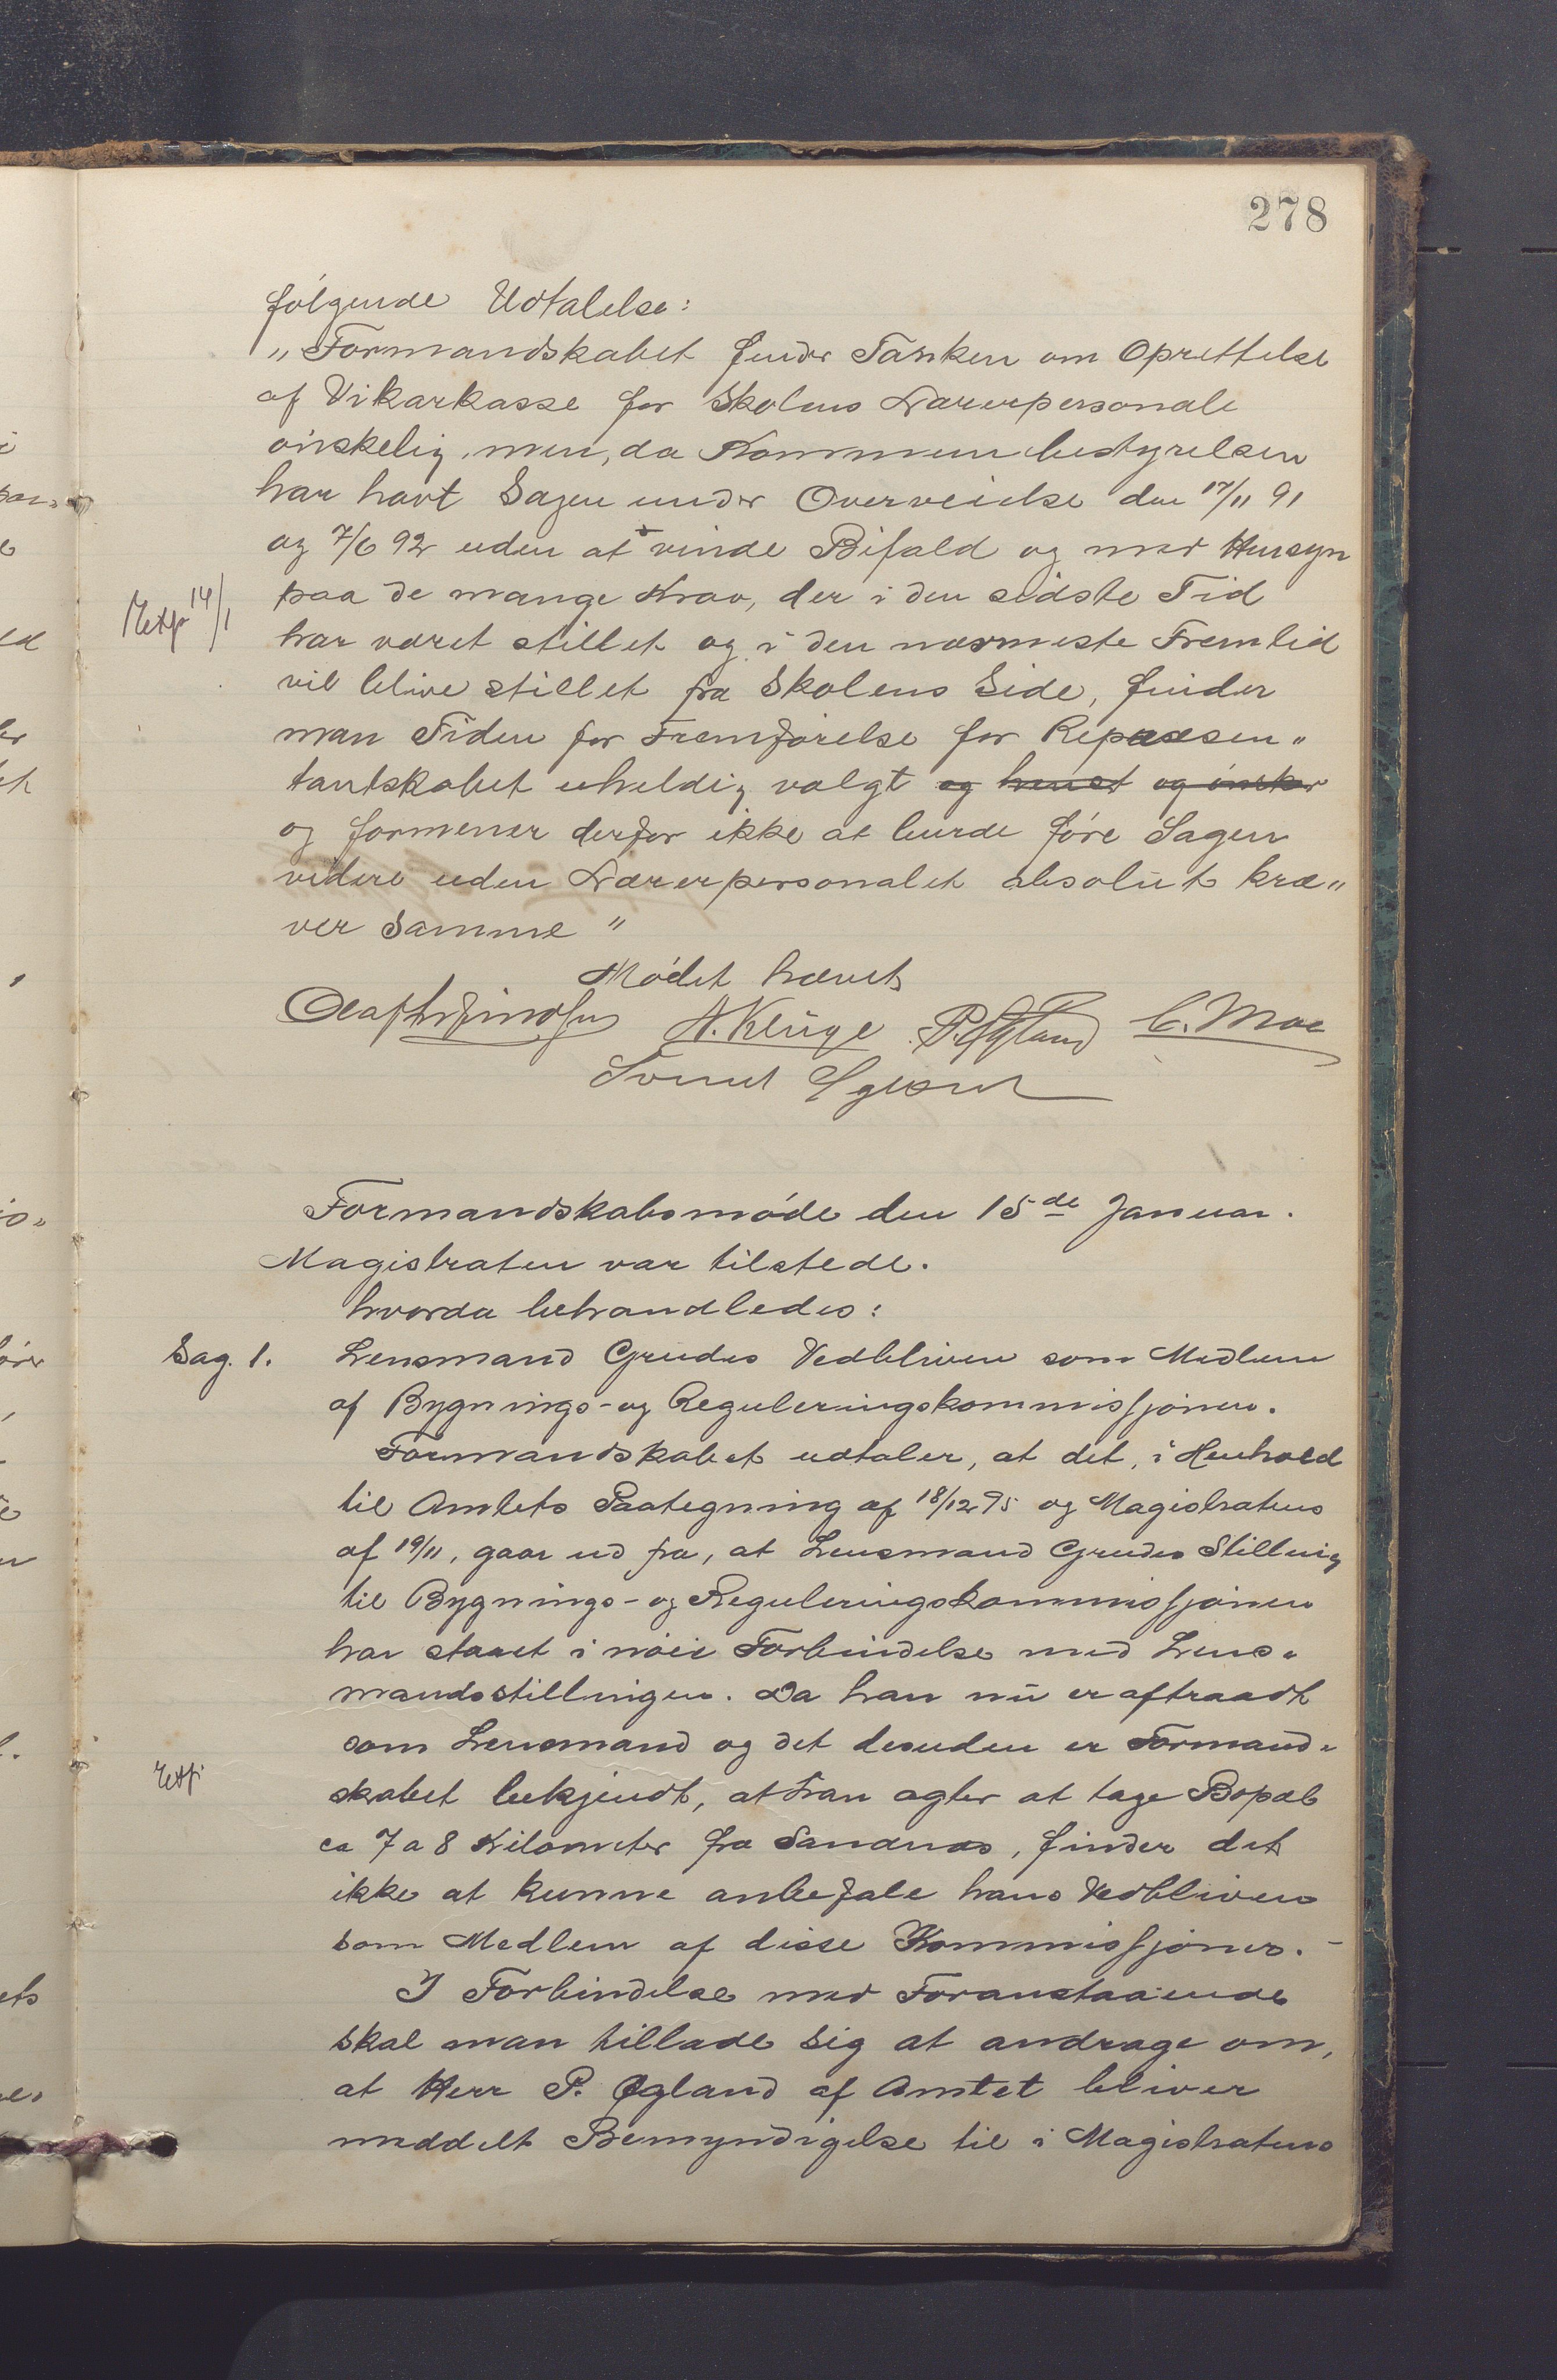 278
følgende Udtalelse:
„Formandskabet finder Tanken om Oprettelse
af Vikarkasse for Skolens Lærerpersonale
ønskelig, men, da Kommunebestyrelsen
har havt Sagen under Overveielse den 17/11 91
og 7/6 92 uden at vinde Bifald og med Hensyn
paa de mange Krav, der i den sidste Tid
14/1
har været stillet og i den nærmeste Fremtid
vil blive stillet fra Skolens Side, finder
man Tiden for Fremførelse for Repræsen„
tantskabet uheldig valgt og henst og ønsker
og formener derfor ikke at burde føre Sagen
videre uden Lærerpersonalet absolut kræ„
ver Samme "
Mødet hævet
A. Kluge P. Øgland C. Moe
Formandskabsmøde den 15de Januar.
Magistraten var tilstede.
hvorda behandledes:
Sag. 1. Lensmand Grudes Vedbliven som Medlem
af Bygnings- og Reguleringskommissjonen.
Formandskabet udtaler, at det, i Henhold
til Amtets Paategning af 18/12 95 og Magistratens
af 19/11, gaar ud fra, at Lensmand Grudes Stilling
til Bygnings- og Reguleringskommissjonen
har staaet i nøie Forbindelse med Lens„
mandsstillingen. Da han nu er aftraadt
som Lensmand og det desuden er Formand„
skabet bekjendt, at han agter at tage Bopæl
ca 7 a 8 Kilometer fra Sandnæs, finder det
ikke at kunne anbefale hans Vedbliven
som Medlem af disse Kommissjoner. -
I Forbindelse med Foranstaaende
skal man tillade sig at andrage om,
at Herr P. Øgland af Amtet bliver
meddelt Bemyndigelse til i Magistratens